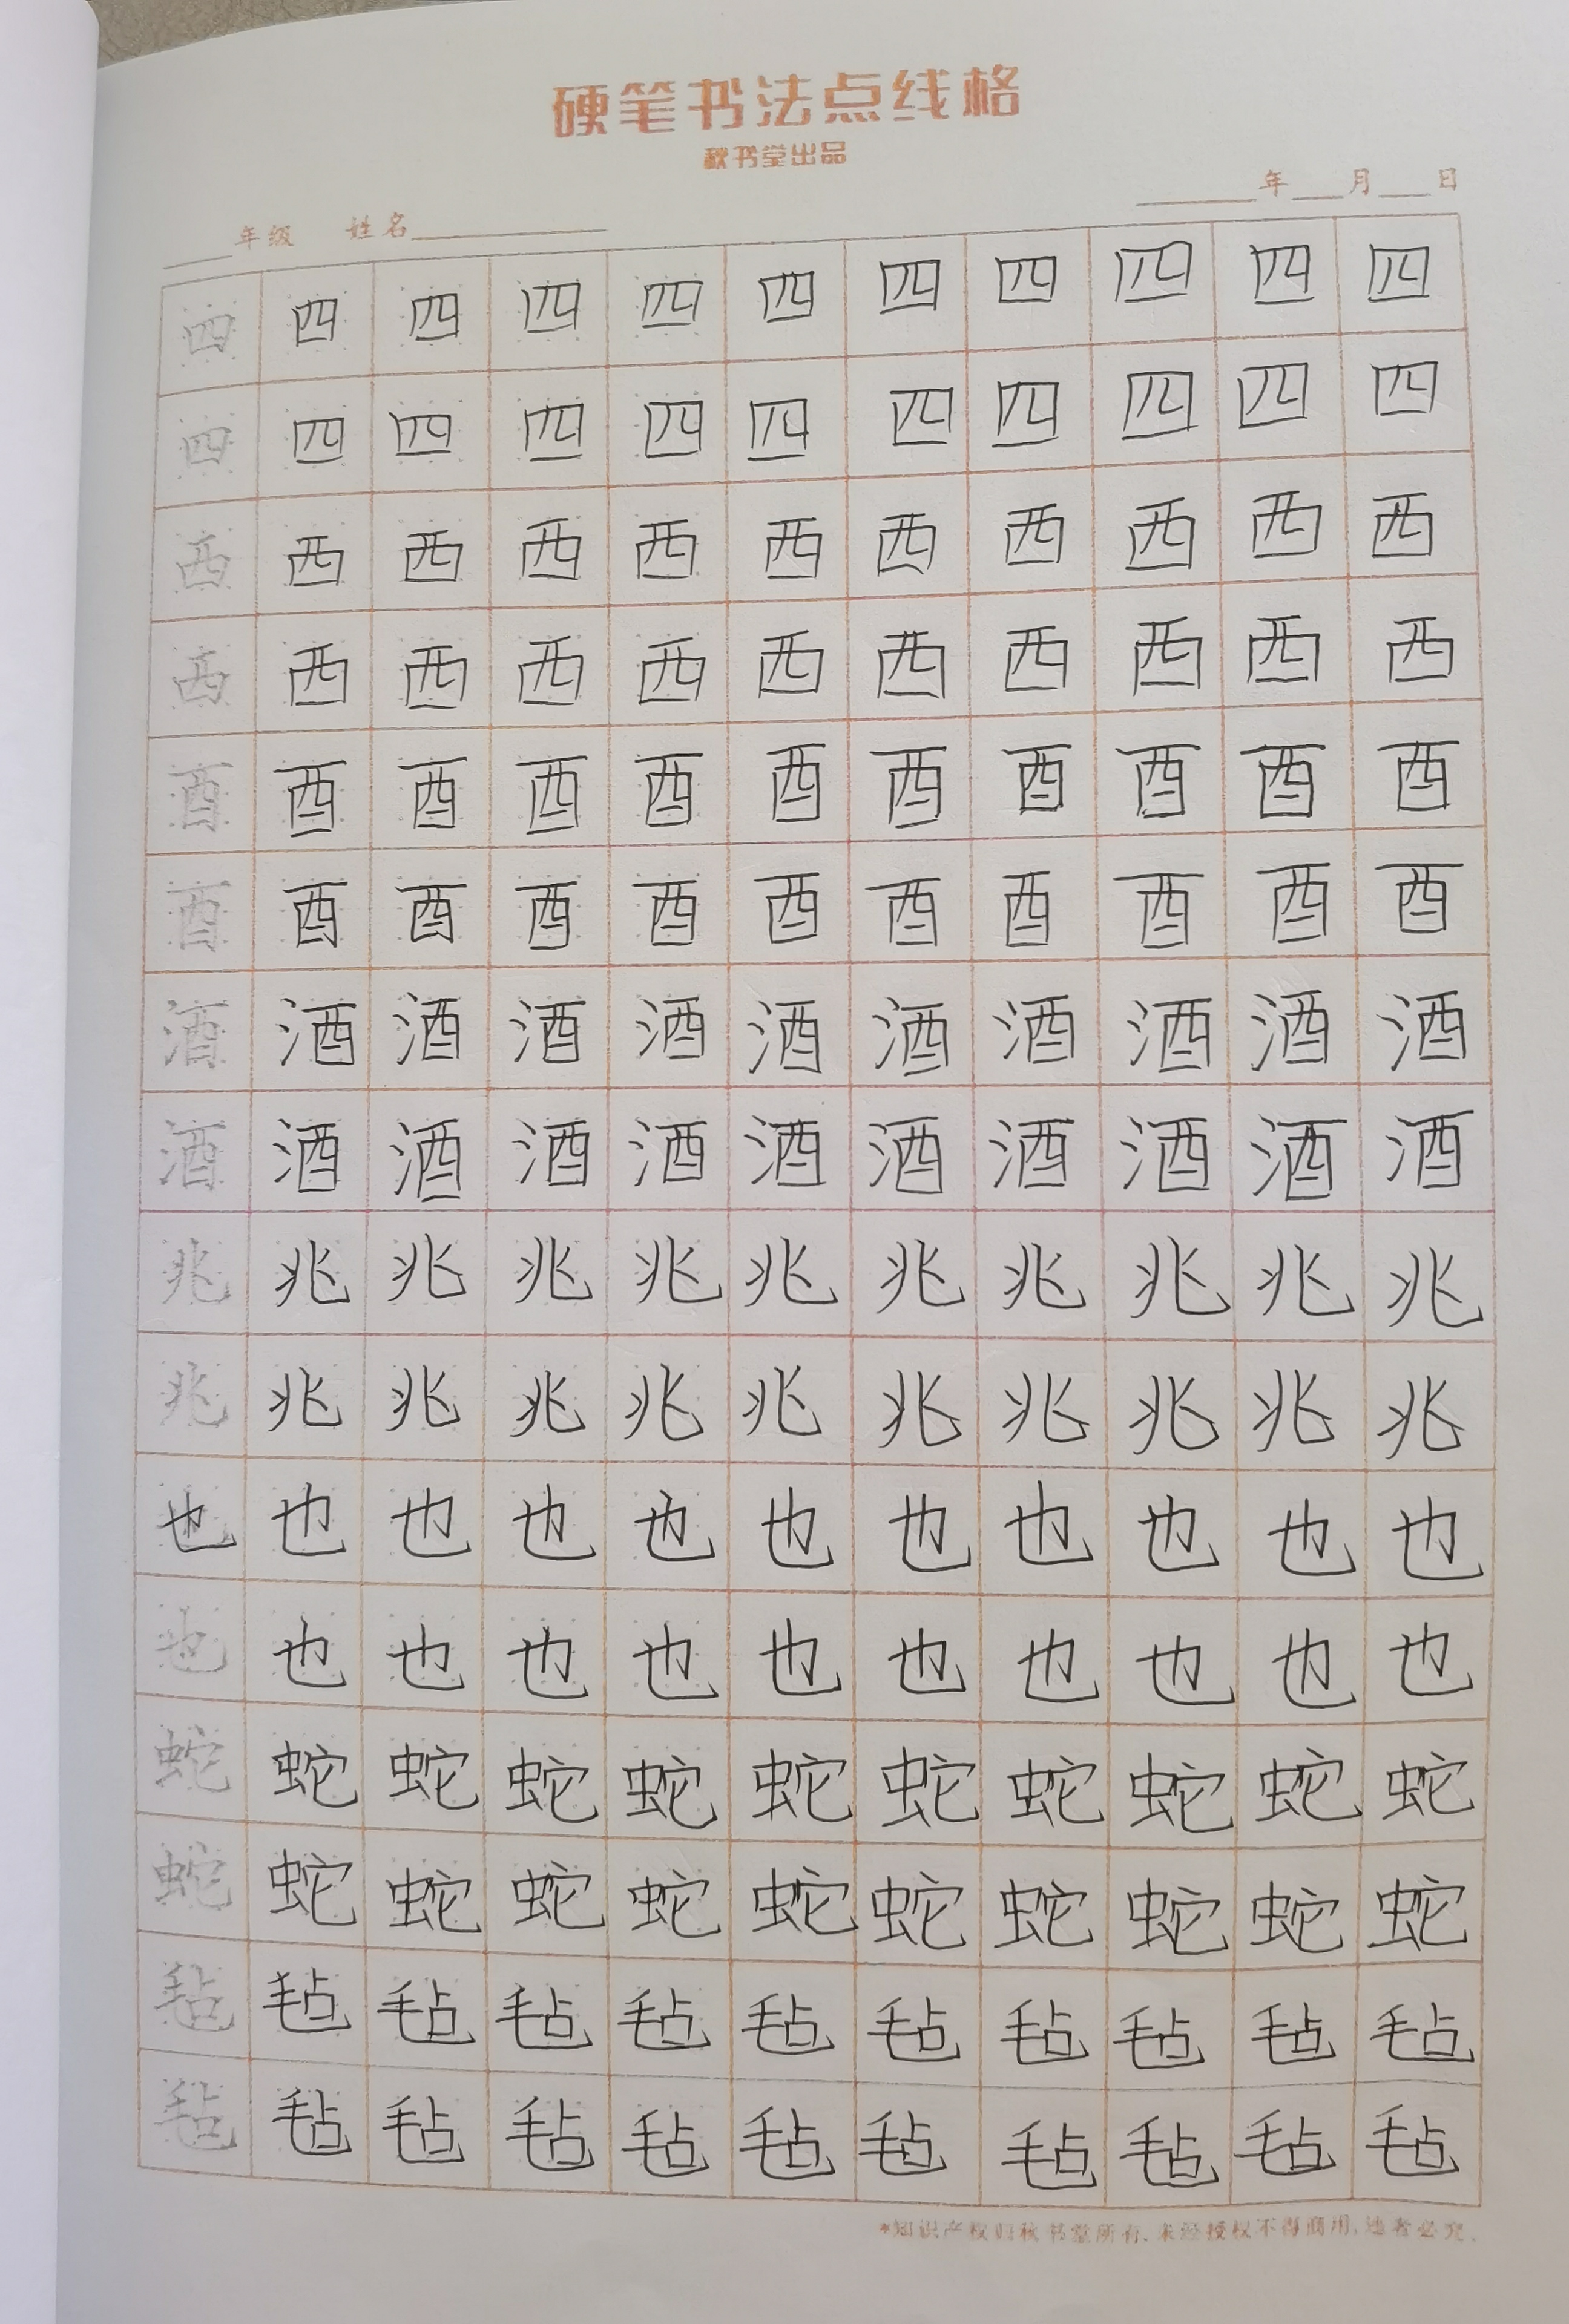 硬笔书法点线格
秋书堂出品
年 月 日
年级 姓名
四 四 四 四 四 四 四 四 四 四 四
四 四 四 四 四 四 四 四 四 四 四
西 西 西 西 西 西 西 西 西 西 西
西 西 西 西 西 西 西 西 西 西 西
酉 酉 酉 酉 酉 酉 酉 酉 酉 酉 酉
酉 酉 酉 酉 酉 酉 酉 酉 酉 酉 酉
酒 酒 酒 酒 酒 酒 酒 酒 酒 酒 酒
酒 酒 酒 酒 酒 酒 酒 酒 酒 酒 酒
兆 兆 兆 兆 兆 兆 兆 兆 兆 兆 兆
兆 兆 兆 兆 兆 兆 兆 兆 兆 兆 兆
也 也 也 也 也 也 也 也 也 也 也
也 也 也 也 也 也 也 也 也 也 也
蛇 蛇 蛇 蛇 蛇 蛇 蛇 蛇 蛇 蛇 蛇
蛇 蛇 蛇 蛇 蛇 蛇 蛇 蛇 蛇 蛇 蛇
毡 毡 毡 毡 毡 毡 毡 毡 毡 毡 毡
毡 毡 毡 毡 毡 毡 毡 毡 毡 毡 毡
*知识产权归秋书堂所有,未经授权不得商用,违者必究。